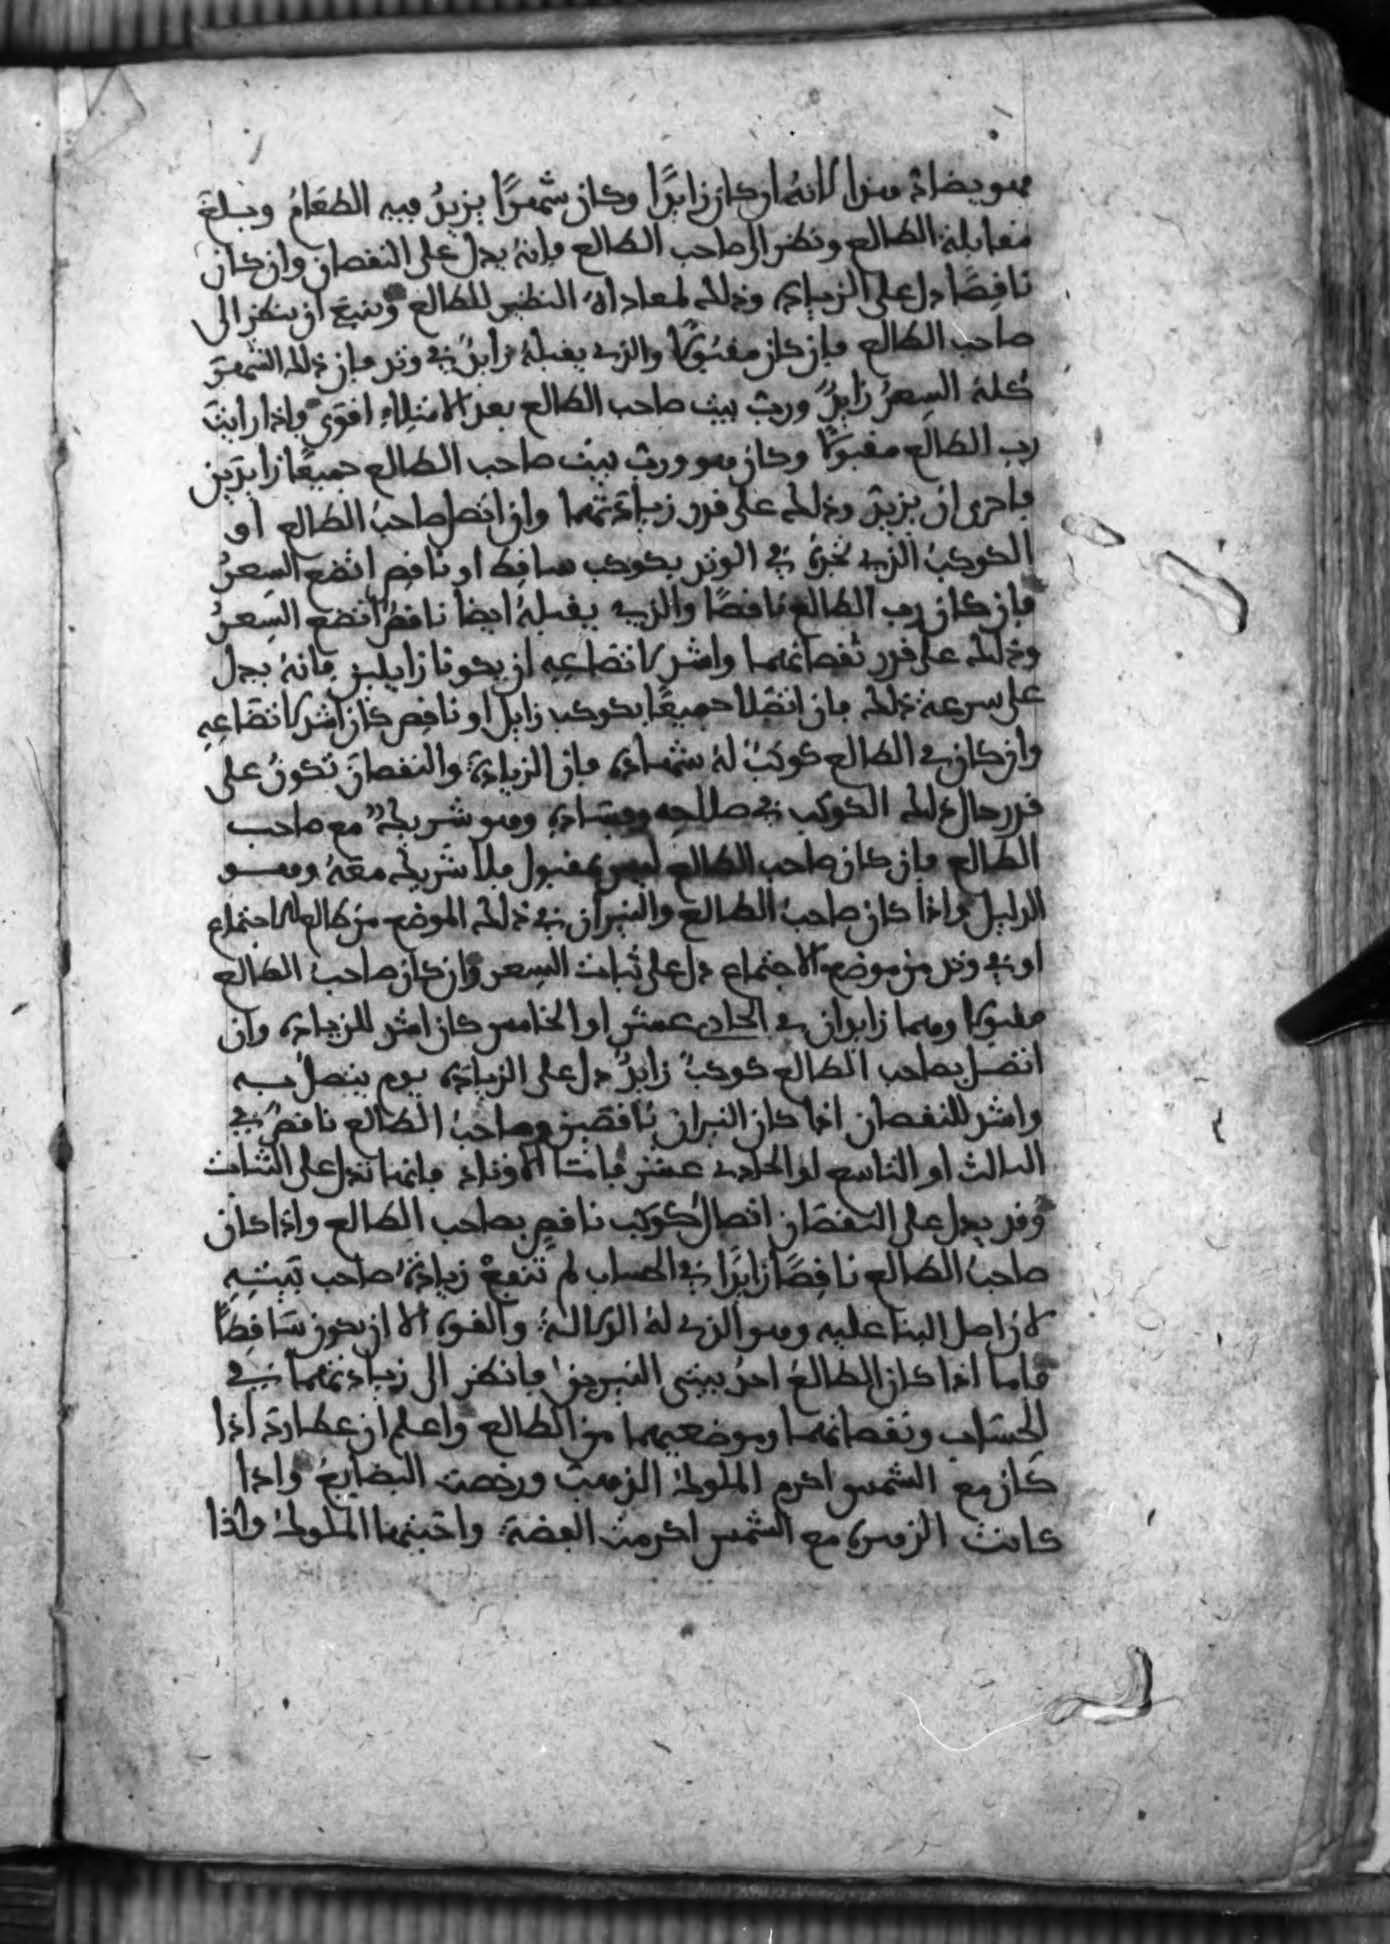 هو يضاد هذا لانه ان كان زايدًا وكان شمسًا يزيدُ فيه الطعامُ وبلغ
مقابلة الطالع ونظر الى صاحب الطالع فانهُ يدل على النقصان وان كان
ناقِصًا دل على الزيادة وذلك لمعاداة النظير للطالع وينبغ ان ينظر الى
صاحب الطالع فان كان مقبُولا والذي يقبلهُ زايدٌ في وتد فان ذلك الشهر
كله السِعرُ زايدٌ ورب بيت صاحب الطالع بعد الامتلاء اقوى واذا رايت
رب الطالع مقبولا وكان هو ورب بيت صاحب الطالع جميعًا زايدَين
فاحرى ان يزيد وذلك على قدر زيادتهما وان اتصل صاحبُ الطالع او
الكوكبُ الذي تجدهُ في الوتد بكوكب ساقِط او ناقِص اتضع السِعرُ
فان كان رب الطالع ناقصًا والذي يقبلهُ ايضا ناقصُ اتضع السِعرُ
وذلك على قدر نُقصانهما واشد لاتضاعِهِ ان يكونا زايلين فانهُ يدل
على سرعة ذلك فان اتصلا جميعًا بكوكب زايل او ناقِص كان اشد لاتضاعِهِ
وان كان في الطالع كوكبٌ لهُ شهادة فان الزيادة والنقصان تكونُ على
قدر حال ذلك الكوكب في صلاحِه وفسَادِه وهو شريك مع صاحب
الطالع فان كان صاحب الطالع ليس بمقبول فلا شريك معهُ وهو
الدليل واذا كان صاحبُ الطالع والنيران في ذلك الموضع من طالع الاجتماع
او في وتد من موضع الاجتماع دل على ثبات السِعر وان كان صاحبُ الطالع
مقبولا وهما زايدان في الحادي عشر او الخامس كان اشد للزيادة وان
اتصَل بصاحب الطالع كوكبٌ زايدٌ دل على الزيادة يوم يتصلُ به
واشد للنقصان اذا كان النيران ناقصين وصاحبُ الطالع ناقصٌ في
الثالث او التاسع او الحادي عشر فاما الاوتاد فانها تدل على الثبات
وقد يدل على النقصان اتصالُ كوكب ناقصٍ بصاحب الطالع واذا كان
صاحبُ الطالع ناقِصًا زايدًا في الحساب لم تنفعْ زيادةُ صاحب بَيتِهِ
لان اصل البنا عليه وهو الذي له الدلالةُ والقوة الا ان يكون سَاقِطًا
فاما اذا كان الطالعُ احدُ بيتي النيرين فانظر الى زيادتهما في
الحسَاب ونقصانهما وموضعيهما من الطالع واعلم ان عطارد اذا
كان مع الشمس اكرم الملوك الذهب ورخصت البضايعُ واذا
كانت الزهرة مع الشمس اكرمت الفضة واحبتها الملوك واذا